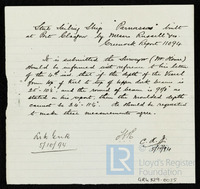 Steel Sailing Ship "Parnassos" built
at Port Glasgow by Messrs Russell &Co
Greenock Report 11894
It is submitted the Surveyor (Mr.
should be informed with reference to his letter
of the 4th inst. that if the depth of the Vessel
from top of Keel to top of upper deck beams is
25.10½ and the round of beam 9½" as
stated in his report, then the moulded depth
cannot be 24.11½. He should be requested
to make these measurements agree.
5/10/94
Lloyd's Register
Foundation